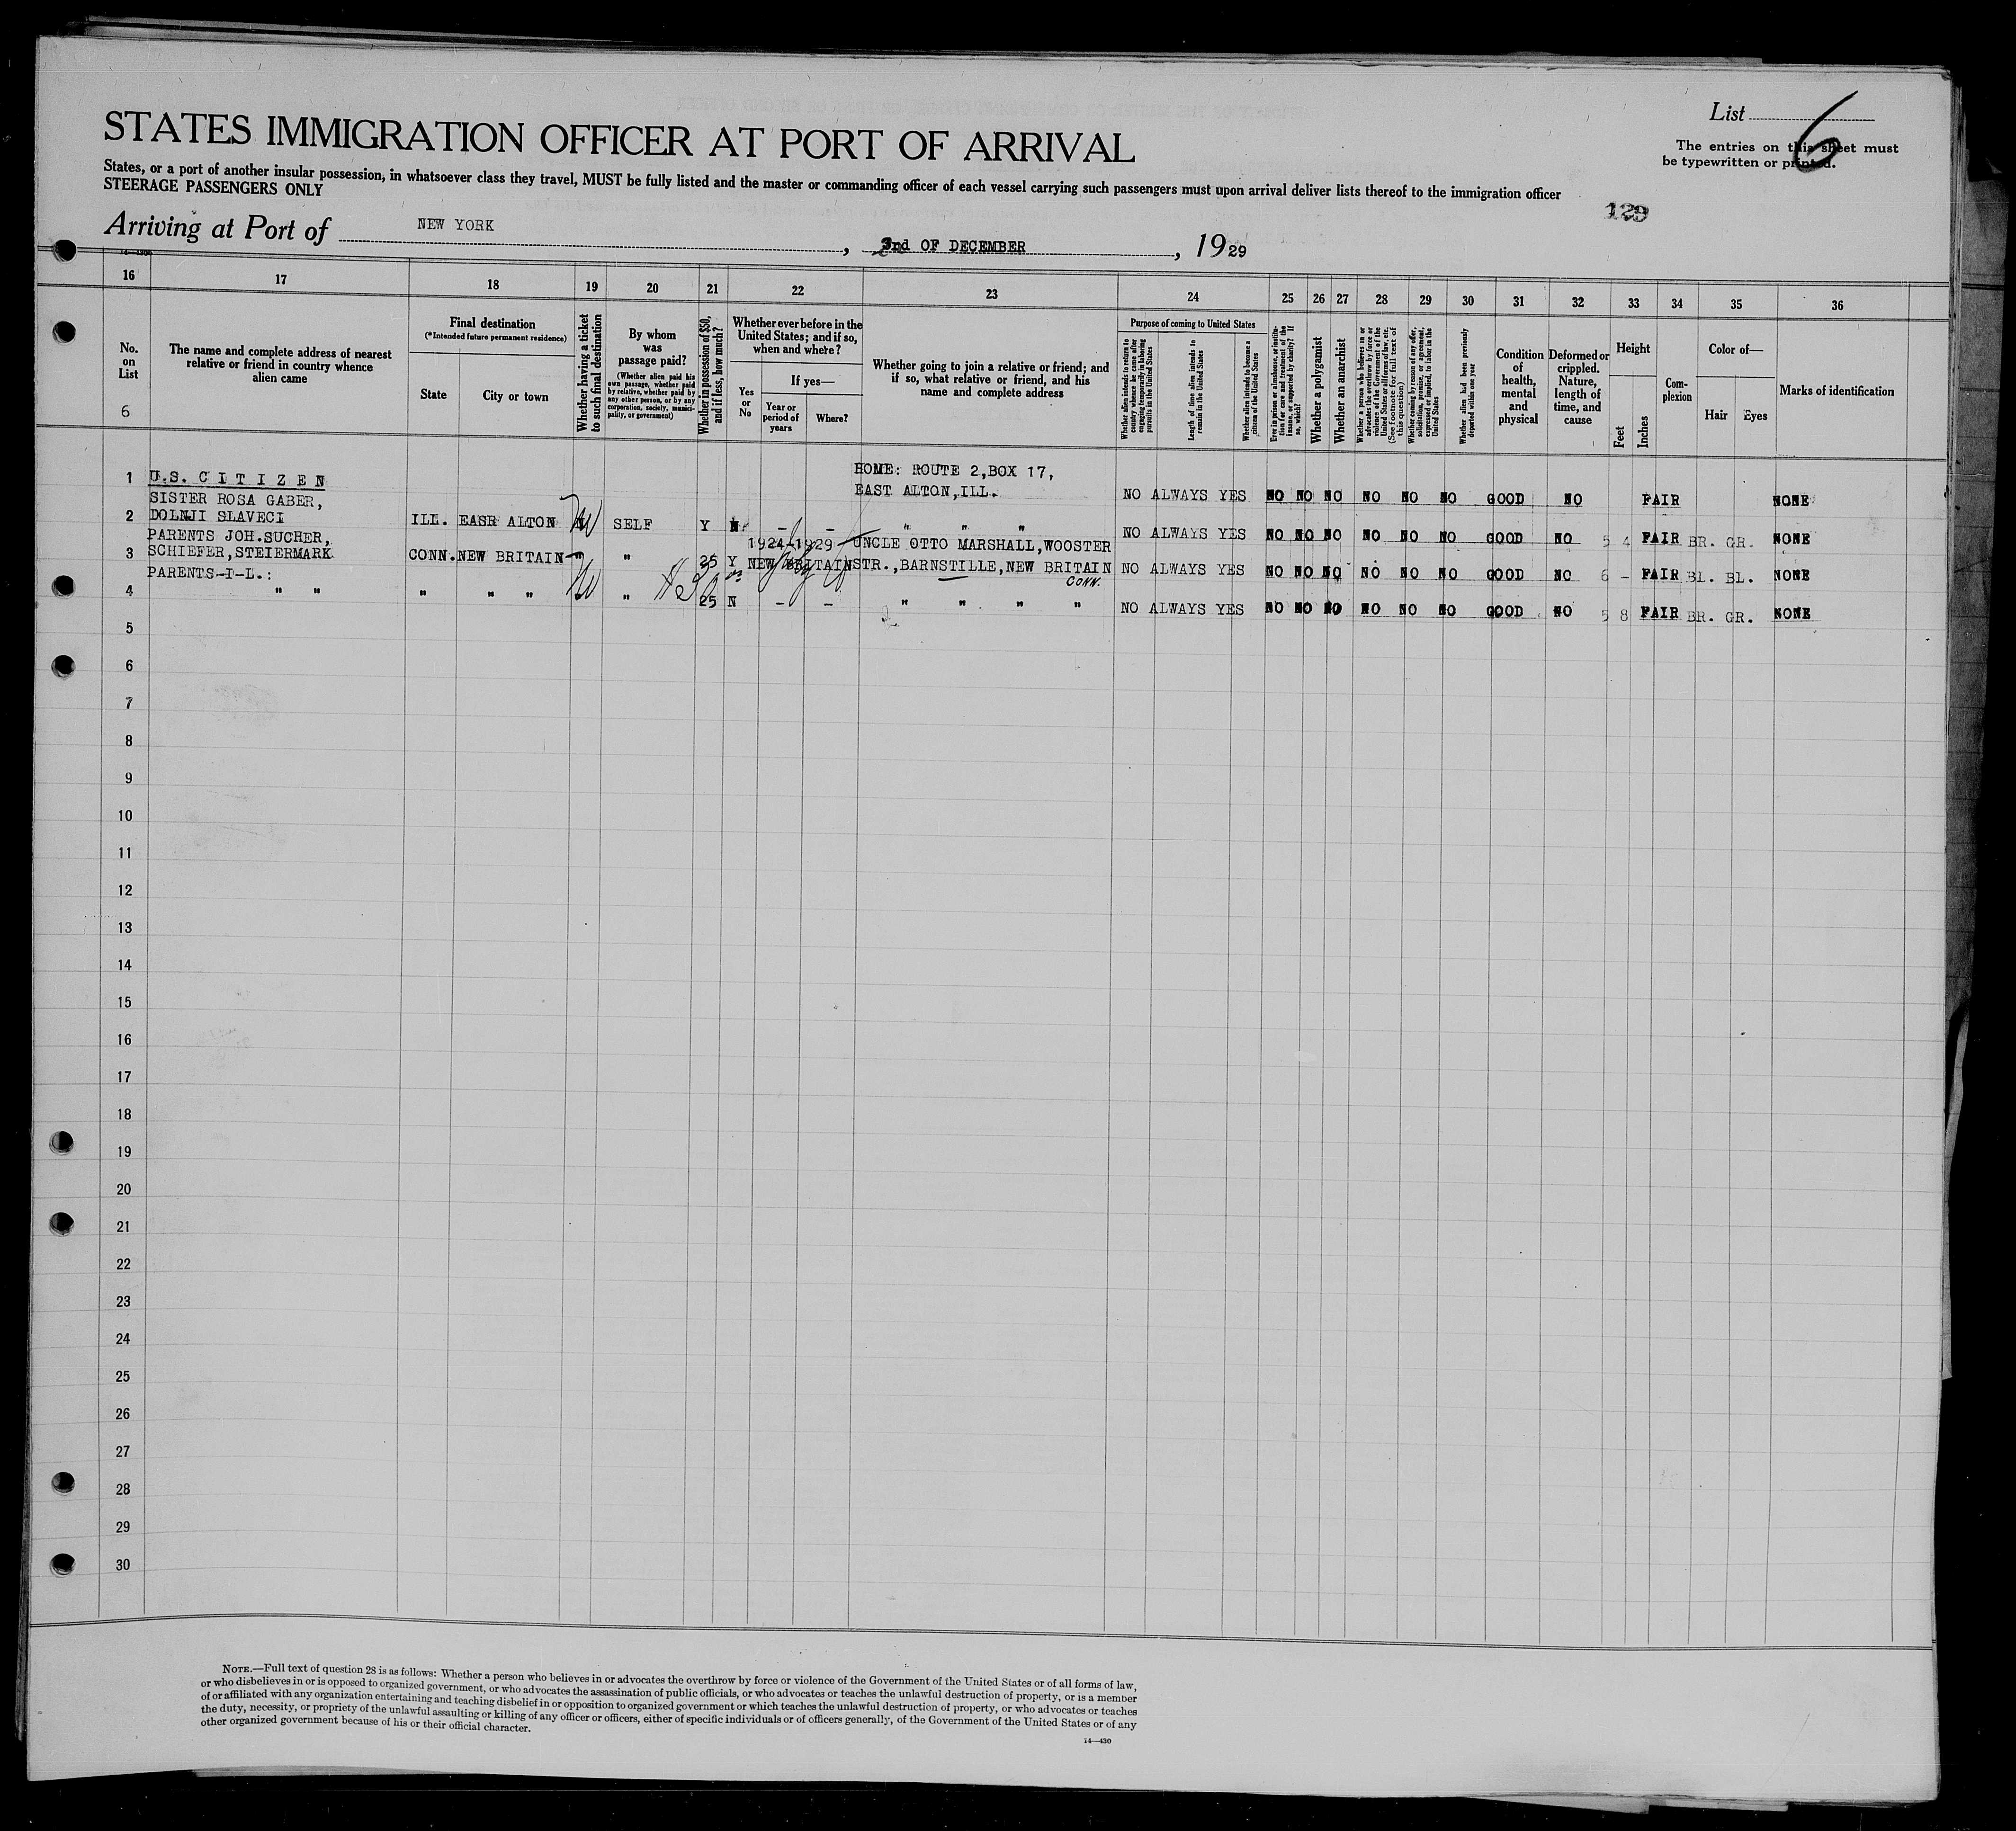 List
6
The entries on this sheet must
be typewritten or printed.
STATES IMMIGRATION OFFICER AT PORT OF ARRIVAL
States, or a port of another insular possession, in whatsoever class they travel, MUST be fully listed and the master or commanding officer of each vessel carrying such passengers must upon arrival deliver lists thereof to the immigration officer
STEERAGE PASSENGERS ONLY
129
Arriving at Port of NEW YORK, 3rd OF DECEMBER, 1929
16 17 18 19 20 21 22 23 24 25 26 27 28 29 30 31 32 33 34 35 36
No. on List
6
The name and complete address of nearest relative or friend in country whence alien came
Final destination
(*Intended future permanent residence)
State
City or town
Whether having a ticket to such final destination
By whom was passage paid?
(Whether alien paid his own passage, whether paid by relative, whether paid by any other person, or by any corporation, society, municipality, or government)
Whether in possession of $50, and if less, how much?
Whether ever before in the United States; and if so, when and where?
Yes or No
If yes—
Year or period of years
Where?
Whether going to join a relative or friend; and if so, what relative or friend, and his name and complete address
Purpose of coming to United States
Whether alien intends to return to country whence he came after engaging temporarily in laboring pursuits in the United States
Length of time alien intends to remain in the United States
Whether alien intends to become a citizen of the United States
Ever in prison or almshouse, or institution for care and treatment of the insane, or supported by charity? If so, which?
Whether a polygamist
Whether an anarchist
Whether a person who believes in or advocates the overthrow by force or violence of the Government of the United States or all forms of law, etc. (See footnote for full text of this question)
Whether coming by reason of any offer, solicitation, promise, or agreement, expressed or implied, to labor in the United States
Whether alien had been previously deported within one year
Condition of health, mental and physical
Deformed or crippled. Nature, length of time, and cause
Height
Feet
Inches
Complexion
Color of—
Hair
Eyes
Marks of identification
HOME: ROUTE 2,BOX 17,
1 U.S. C I T I Z E N EAST ALTON,ILL. NO ALWAYS YES NO NO NO NO NO NO GOOD NO FAIR NONE
SISTER ROSA GABER,
2 DOLNJI SLAVECI ILL. EASR ALTON SELF Y N - - " " " NO ALWAYS YES NO NO NO NO NO NO GOOD NO 5 4 FAIR BR. GR. NONE
PARENTS JOH.SUCHER, 1924-1929 UNCLE OTTO MARSHALL,WOOSTER
3 SCHIEFER,STEIERMARK CONN. NEW BRITAIN " " 25 Y NEW BRITAIN STR.,BARNSTILLE,NEW BRITAIN NO ALWAYS YES NO NO NO NO NO NO GOOD NO 6 - FAIR BL. BL. NONE
CONN.
PARENTS-I-L.:
4 " " " " " " 25 N - - " " " " NO ALWAYS YES NO NO NO NO NO NO GOOD NO 5 8 FAIR BR. GR. NONE
5
6
7
8
9
10
11
12
13
14
15
16
17
18
19
20
21
22
23
24
25
26
27
28
29
30
NOTE.—Full text of question 28 is as follows: Whether a person who believes in or advocates the overthrow by force or violence of the Government of the United States or of all forms of law,
or who disbelieves in or is opposed to organized government, or who advocates the assassination of public officials, or who advocates or teaches the unlawful destruction of property, or is a member
of or affiliated with any organization entertaining and teaching disbelief in or opposition to organized government or which teaches the unlawful destruction of property, or who advocates or teaches
the duty, necessity, or propriety of the unlawful assaulting or killing of any officer or officers, either of specific individuals or of officers generally, of the Government of the United States or of any
other organized government because of his or their official character.
14—430